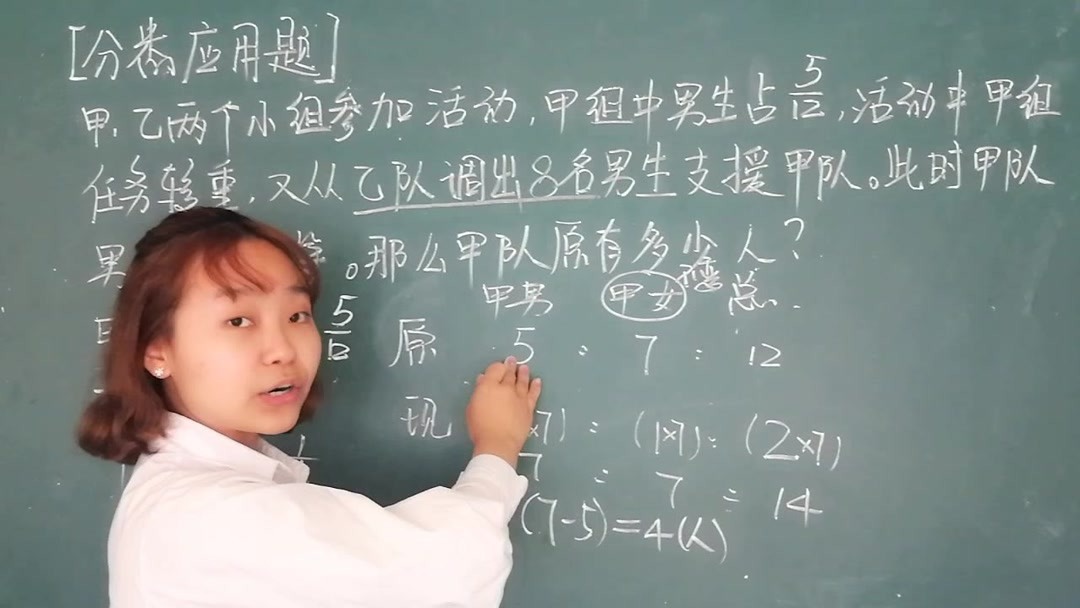 [分数应用题]
甲、乙两个小组参加活动,甲组中男生占5/12,活动中甲组
任务较重,又从乙队调出8名男生支援甲队。此时甲队
男 。那么甲队原有多少人?
甲男 甲女 不变 总
5/12 原 5 : 7 : 12
现 ×7) : (1×7) : (2×7)
7 : 7 : 14
(7-5)=4(人)